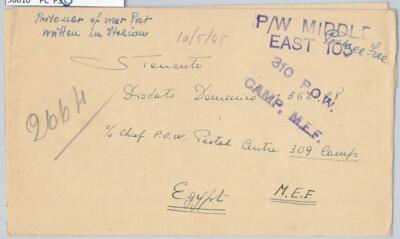 Prisoner of war Post
written in Italian
10/5/45
P/W MIDDLE
EAST 103
Postage Free
310 P.O.W.
CAMP. M.E.F.
S. Tenente
Diodato Domenico
2664
c/o Chief P.O.W. Postal Centre 309 Camp
Egypt M.E.F